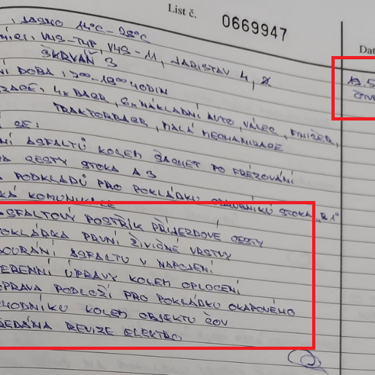 List č. 0669947
Dat
JASNO 14°C - 28°C
ŠKRVÁN 3
NÍ DOBA : 7:00 - 18:00 HODIN
NÁKLADNÍ AUTO, VÁLEC, FINIŠER,
TRAKTORBAGR, MALÁ MECHANIZACE
NÍ ASFALTŮ KOLEM ŠACHET PO FRÉZOVÁNÍ
CESTY STOKA A3
PODKLADŮ PRO POKLÁDKU STOKA „B1"
KÁ KOMUNIKACE
SFALTOVÝ POSTŘIK PŘÍJEZDOVÉ CESTY
OKLÁDKA PRVNÍ ŽIVIČNÉ VRSTVY
OURÁNÍ ASFALTU V NAPOJENÍ
ERENNÍ ÚPRAVY KOLEM OPLOCENÍ
PRAVA PODLOŽÍ PRO POKLÁDKU OKAPOVÉHO
HODNÍKU KOLEM OBJEKTU ČOV
EDÁNA REVIZE ELEKTRO